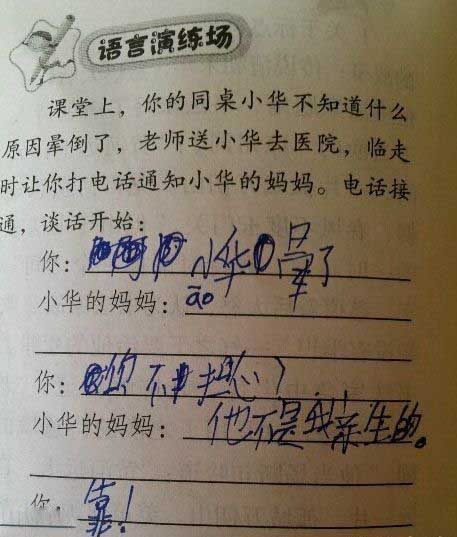 语言演练场
课堂上，你的同桌小华不知道什么
原因晕倒了，老师送小华去医院，临走
时让你打电话通知小华的妈妈。电话接
通，谈话开始：
你： 小华晕了
小华的妈妈：āo
你：你不担心？
小华的妈妈：他不是我亲生的。
你：靠！